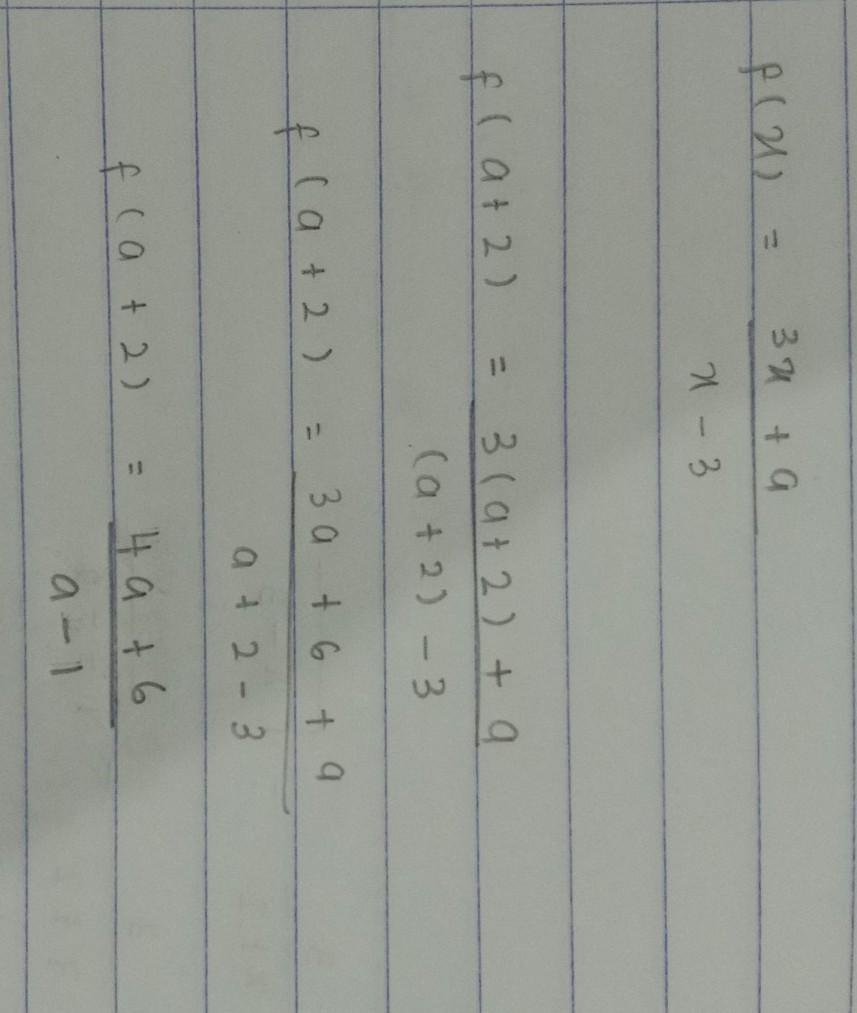 f(x) = 3x + a
x - 3
f(a+2) = 3(a+2) + a
(a+2) - 3
f(a+2) = 3a + 6 + a
a + 2 - 3
f(a+2) = 4a + 6
a - 1